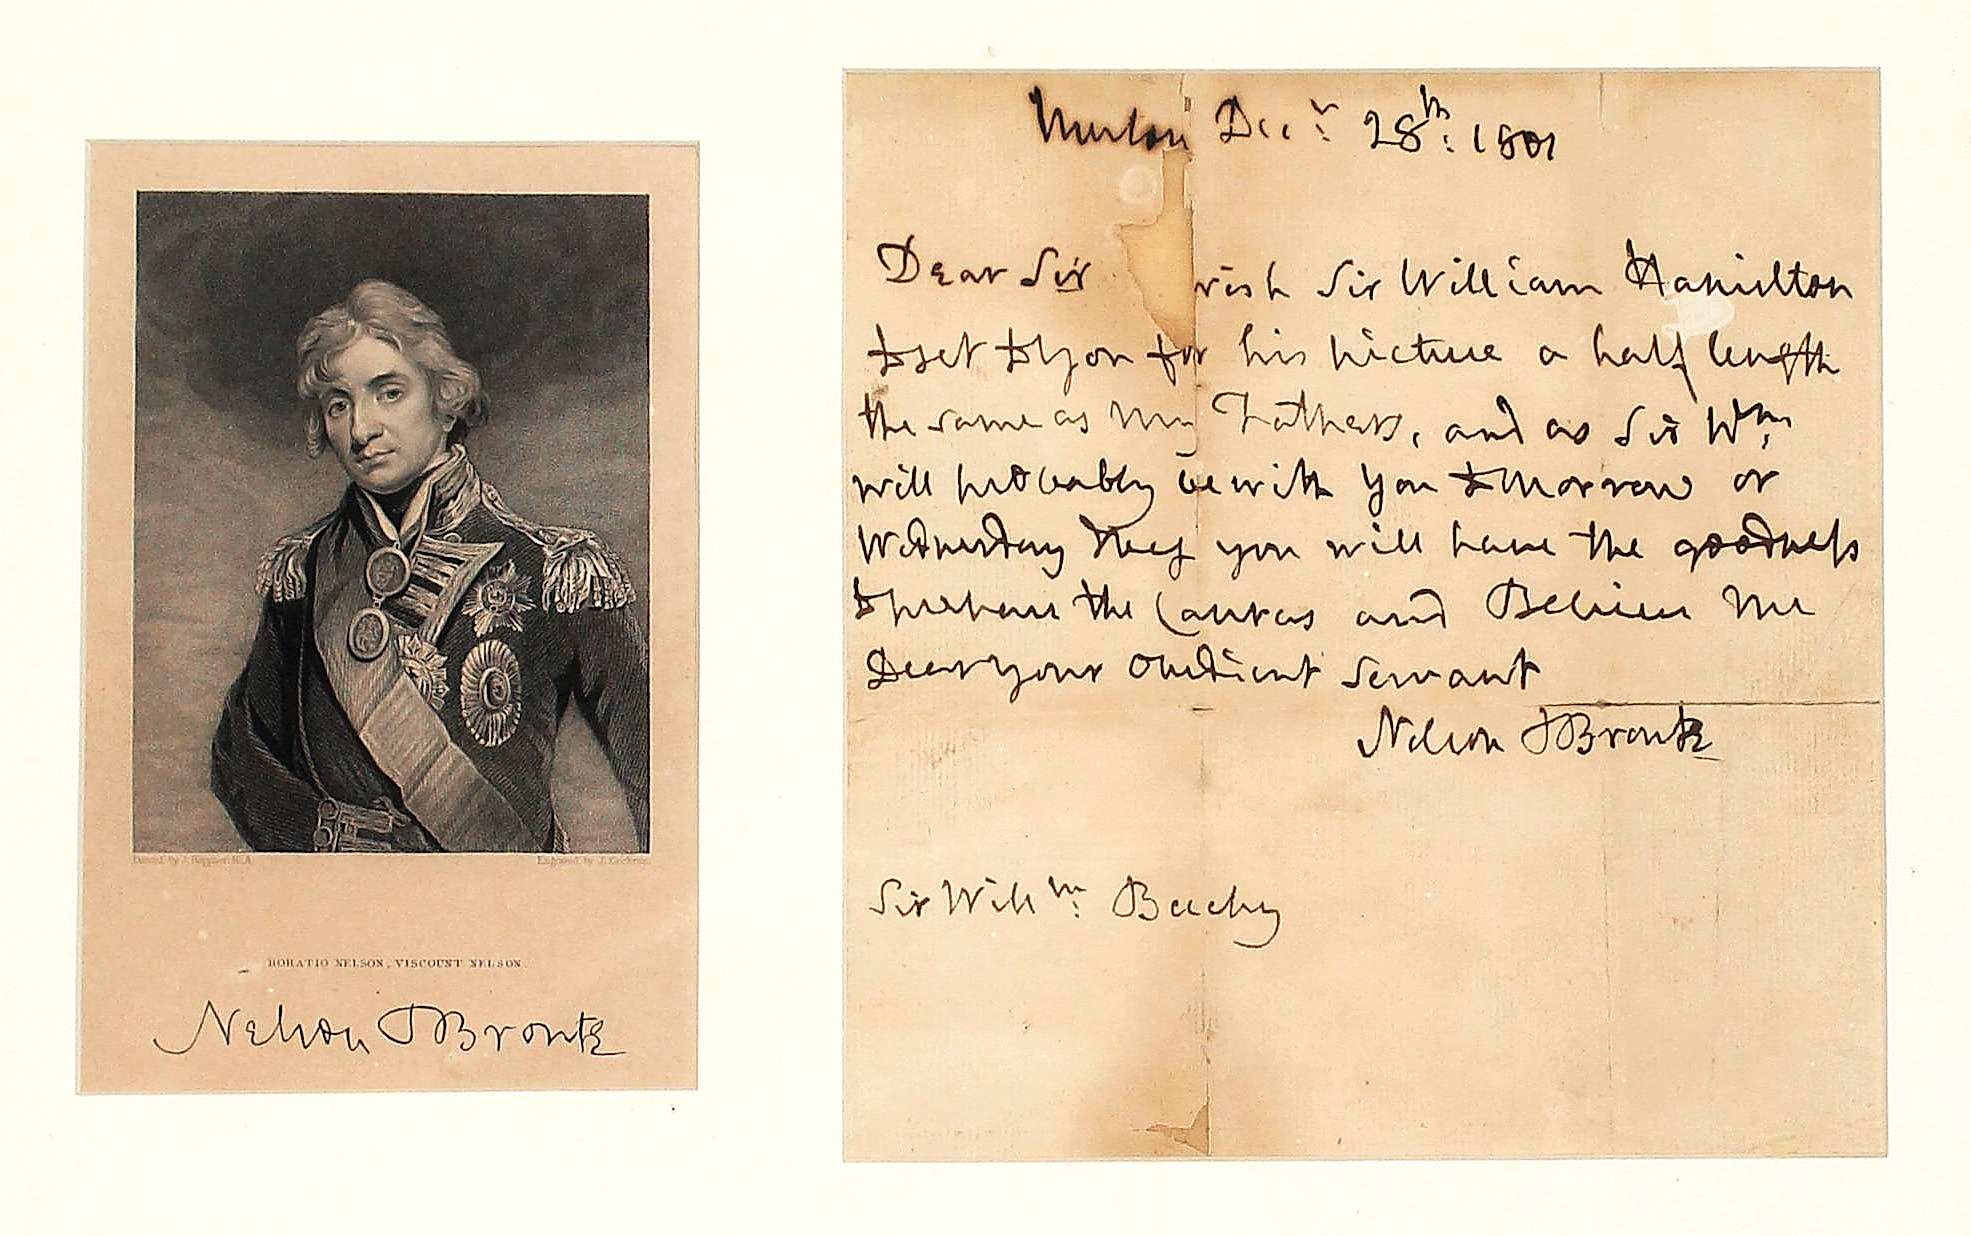 Painted by J. Hoppner R.A.
Engraved by J. Cochran.
HORATIO NELSON, VISCOUNT NELSON.
Nelson & Bronte
Merton Decr. 28th: 1801
Dear Sir wish Sir William Hamilton
to set to you for his picture a half length
the same as My Fathers, and as Sir Wm.
will probably be with you tomorrow or
Wednesday you will have the goodness
to prepare the Canvas and Believe Me
Dear your obedient servant
Nelson & Bronte
Sir Willm. Beechy